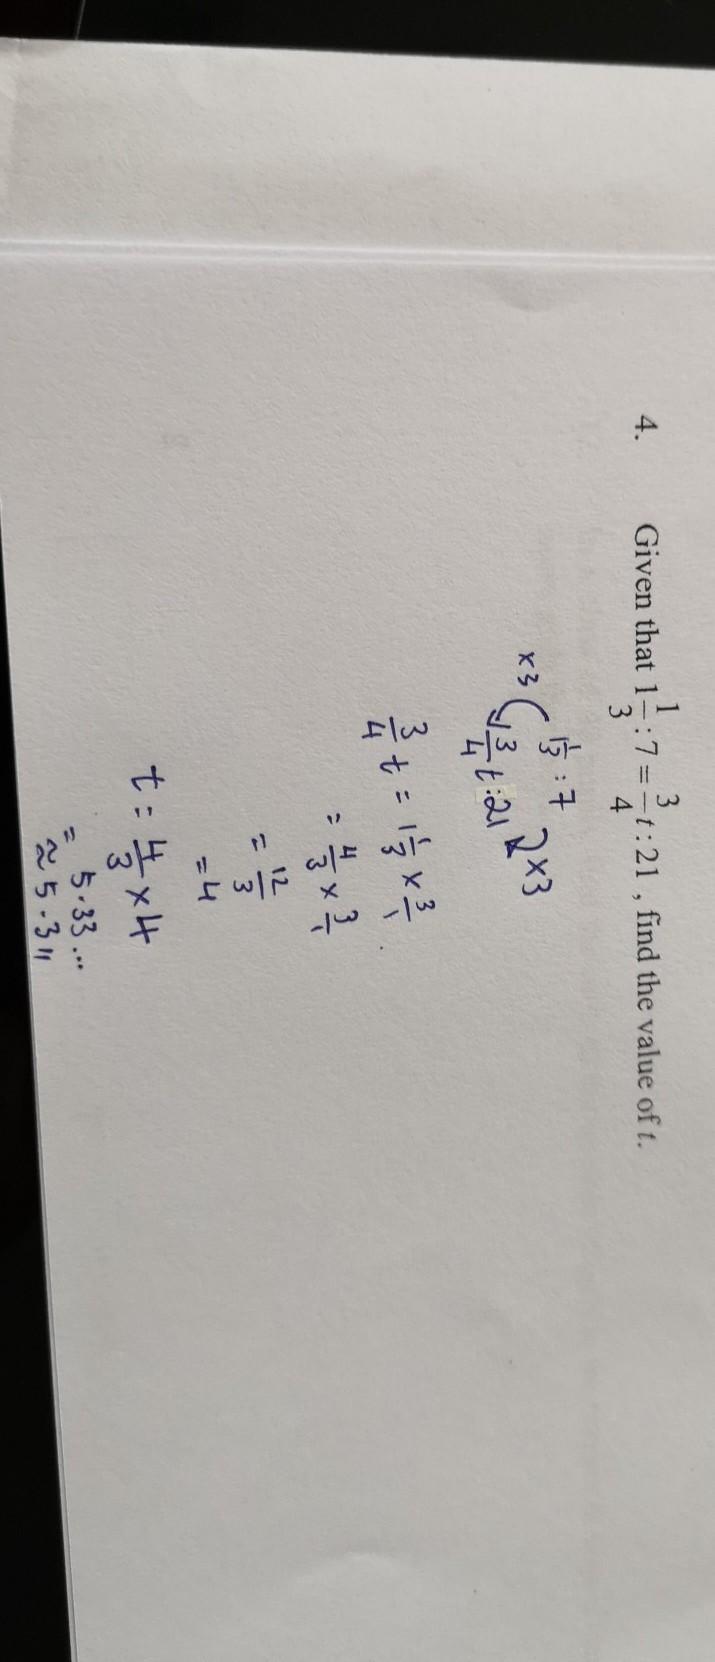 4. Given that 1 1/3 : 7 = 3/4 t : 21 , find the value of t.
1 1/3 : 7
×3 ( 3/4 t : 21 ) ×3
3/4 t = 1 1/3 × 3/1
= 4/3 × 3/1
= 12/3
= 4
t = 4/3 × 4
= 5.33...
≈ 5.3 "